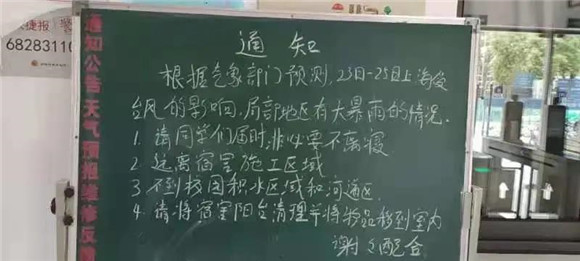 捷报
68283110
通知公告天气预报维修反馈
通知
根据气象部门预测,23日-25日上海受
台风的影响,局部地区有大暴雨的情况.
1. 请同学们届时,非必要不离寝
2. 远离宿室施工区域
3 不到校园积水区域和河道区.
4. 请将宿室阳台清理并将物品移到室内
谢谢配合